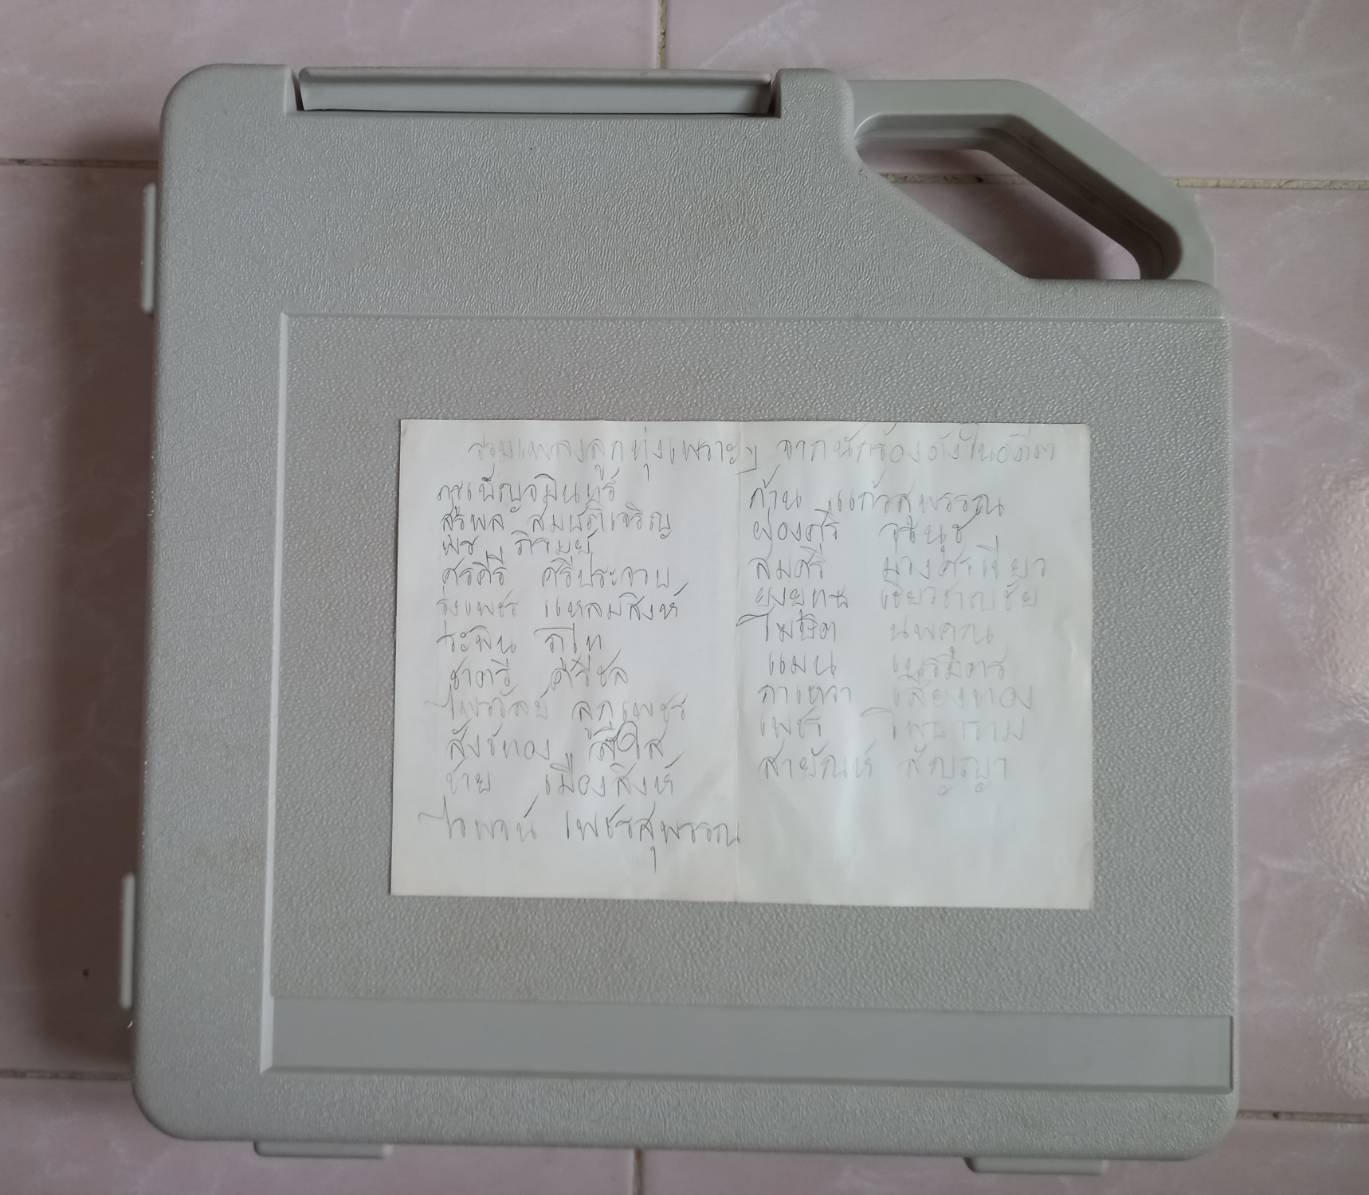 รวมเพลงลูกทุ่งเพราะๆ จากนักร้องดังในอดีต
ครูเบ็ญจมินทร์
สุรพล สมบัติเจริญ
พร ภิรมย์
ศรคีรี ศรีประจวบ
รุ่งเพชร แหลมสิงห์
ระพิน ภูไท
ชาตรี ศรีชล
ไพรวัลย์ ลูกเพชร
สังข์ทอง สีใส
ชาย เมืองสิงห์
ไวพจน์ เพชรสุพรรณ
ก้าน แก้วสุพรรณ
ผ่องศรี วรนุช
สมศรี ม่วงศรเขียว
ยงยุทธ เชี่ยวชาญชัย
โฆษิต นพคุณ
แมน เนรมิตร
กาเหว่า เสียงทอง
เพชร โพธาราม
สายัณห์ สัญญา